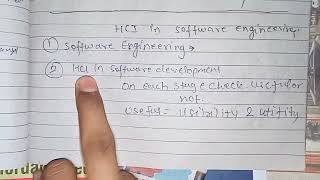 HCI in software engineering
① Software Engineering →
② HCI in software development
on each stage check useful or
not.
useful = Usibility & utility